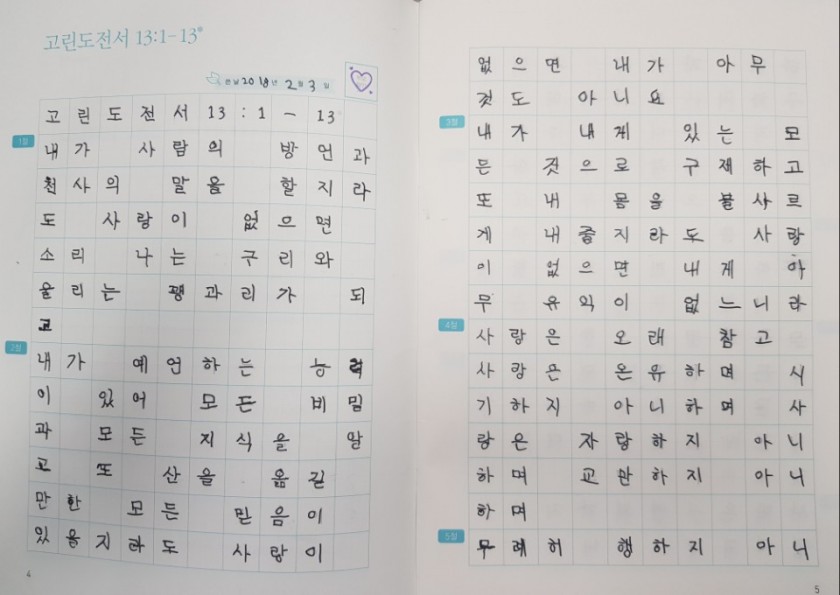 고린도전서 13:1-13
은혜 2018년 2월 3일
고린도전서 13:1-13
1절
내가 사람의 방언과
천사의 말을 할지라
도 사랑이 없으면
소리 나는 구리와
울리는 꽹과리가 되
고
2절
내가 예언하는 능력
이 있어 모든 비밀
과 모든 지식을 알
고 또 산을 옮길
만한 모든 믿음이
있을지라도 사랑이
4
없으면 내가 아무
것도 아니요
3절
내가 내게 있는 모
든 것으로 구제하고
또 내 몸을 불사르
게 내줄지라도 사랑
이 없으면 내게 아
무 유익이 없느니라
4절
사랑은 오래 참고
사랑은 온유하며 시
기하지 아니하며 사
랑은 자랑하지 아니
하며 교만하지 아니
하며
5절
무례히 행하지 아니
5